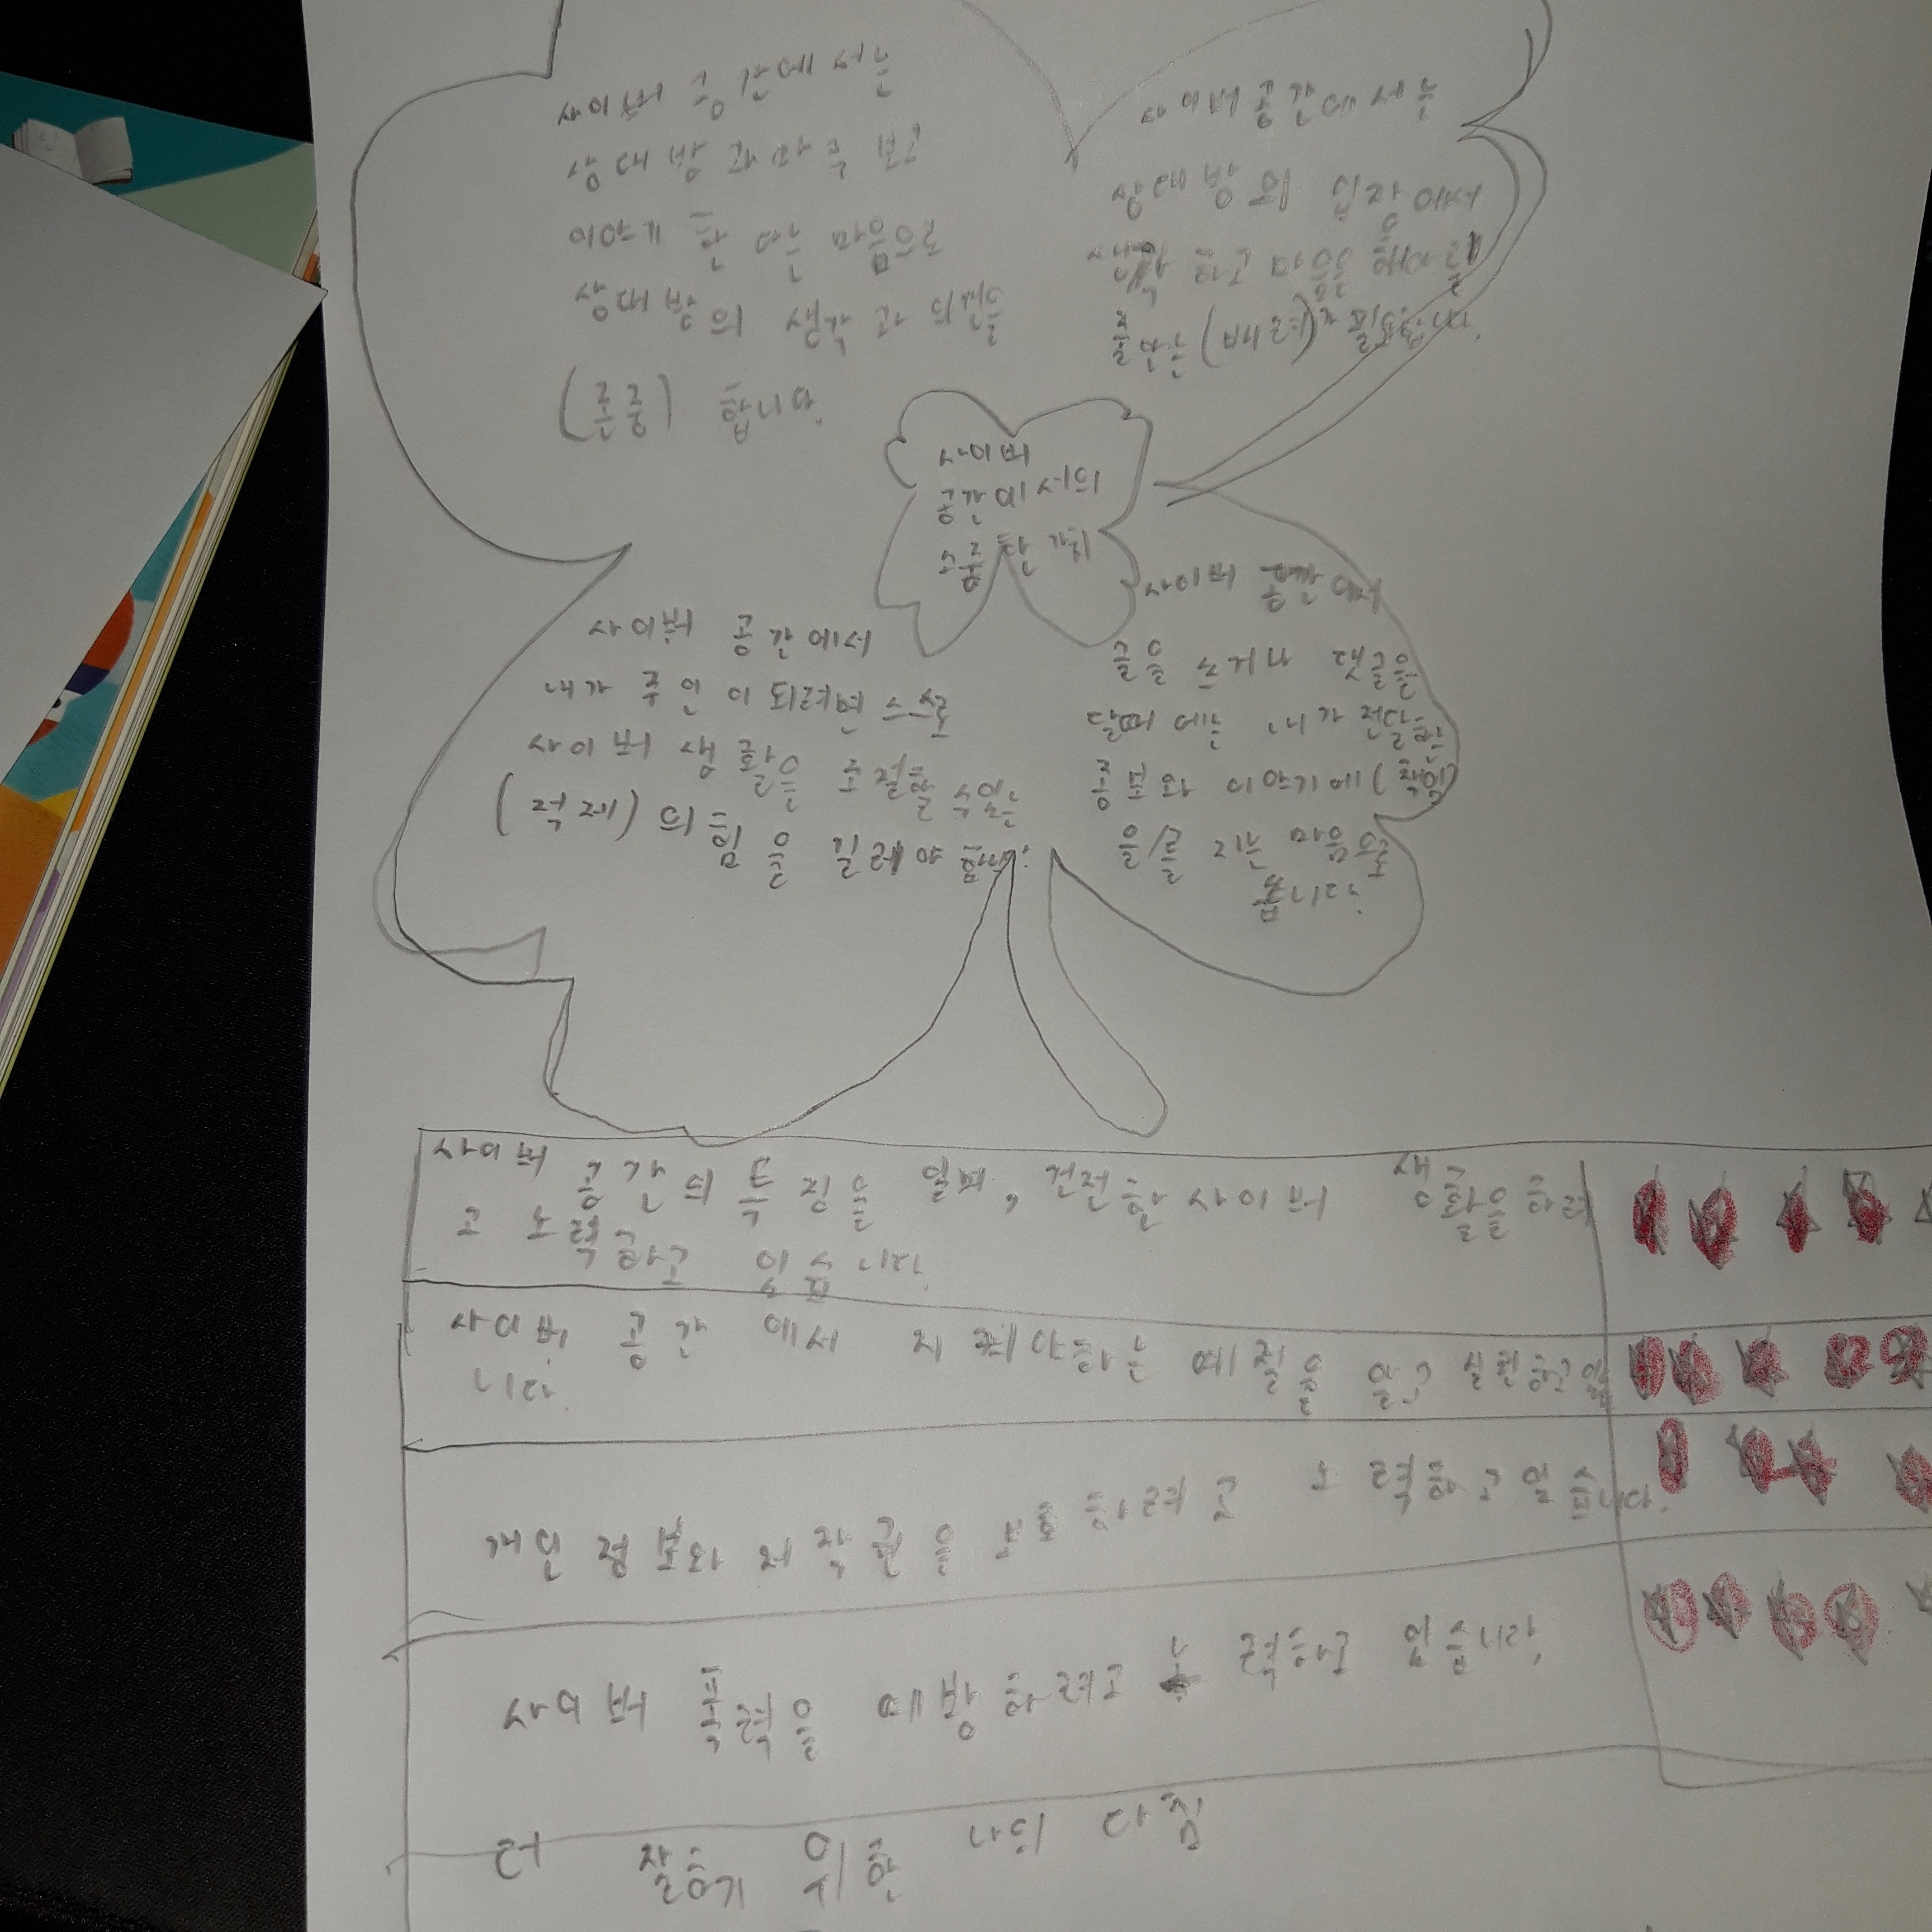 사이버 공간에서는
상대방과 마주 보고
이야기 한 다는 마음으로
상대방의 생각과 의견을
(존중) 합니다.
사이버 공간에서는
상대방의 입장에서
생각 하고 마음을 헤아려
줄 아는 (배려)가 필요합니다.
사이버
공간에서의
소중한 가치
사이버 공간에서
내가 주인이 되려면 스스로
사이버 생활을 조절할 수 있는
(적제)의 힘을 길러야 합니다.
사이버 공간에서
글을 쓰거나 댓글을
달때에는 내가 전달한
종보와 이야기에 (책임)
을/를 지는 마음으로
씁니다.
사이버 공간의 특징을 알며, 건전한 사이버 생활을 하려
고 노력하고 있습니다.
사이버 공간에서 지켜야하는 예절을 알고 실천하고 있습
니다.
개인정보와 저작권을 보호하려고 노력하고 있습니다.
사이버 폭력을 예방하려고 노력하고 있습니다.
더 잘하기 위한 나의 다짐